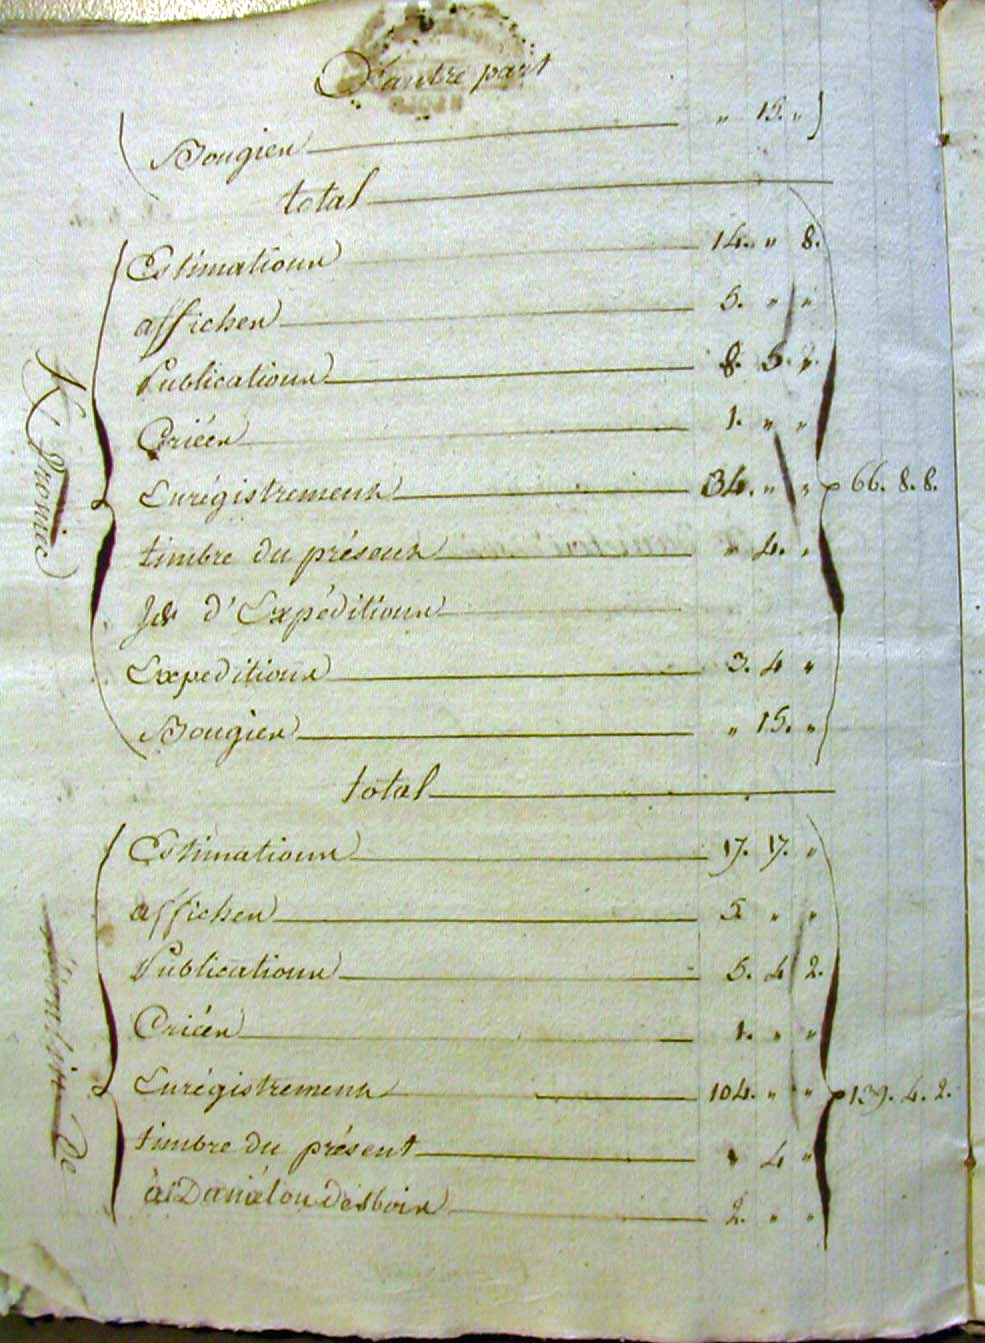 D'autre part
Bougies „ 15. „
total
Estimations 14. „ 8.
affiches 5. „ „
Publications 8. 5. „
Criées 1. „ „
Enrégistrements 34. „ „ 66. 8. 8.
timbre du présens „ 4. „
Js d'Expéditions
Expeditions 3. 4 „
Bougies „ 15. „
total
Estimations 17. 17. „
affiches 5 „ „
Publications 5. 4 2.
Criées 1. „ „
Enrégistrements 104. „ „ 139. 4. 2.
timbre du présent „ 4 „
à Daniélou Desbois 2. „ „